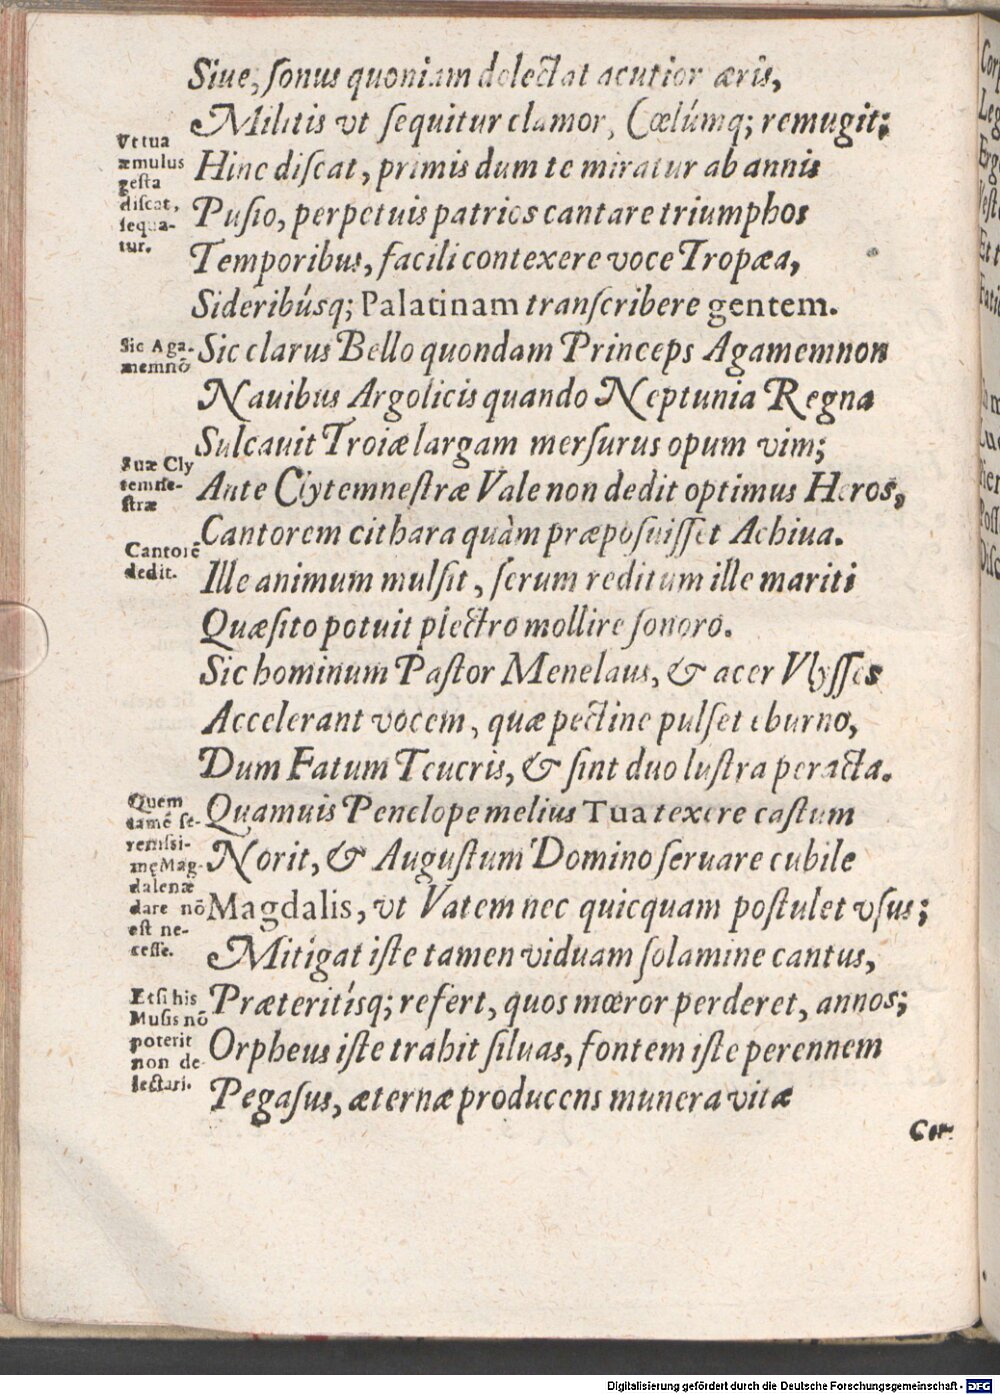 Siue, ſonus quoniam delectat acutior æris,
Militis vt ſequitur clamor, Cœlúmq; remugit;
Vt tua
æmulus
geſta
diſcat,
ſequa-
tur.
Hinc diſcat, primis dum te miratur ab annis
Puſio, perpetuis patrios cantare triumphos
Temporibus, facili contexere voce Tropæa,
Sideribúsq; Palatinam tranſcribere gentem.
Sic Aga-
memnō
Sic clarus Bello quondam Princeps Agamemnon
Nauibus Argolicis quando Neptunia Regna
Sulcauit Troiæ largam merſurus opum vim;
Suæ Cly
temne-
ſtræ
Ante Clytemneſtræ Vale non dedit optimus Heros,
Cantorem cithara quàm præpoſuiſſet Achiua.
Cantorē
dedit.
Ille animum mulſit, ſerum reditum ille mariti
Quæſito potuit plectro mollire ſonoro.
Sic hominum Paſtor Menelaus, & acer Vlyſſes
Accelerant vocem, quæ pectine pulſet eburno,
Dum Fatum Teucris, & ſint duo luſtra peracta.
Quem
tamē ſe-
reniſsi-
mę Mag-
dalenæ
dare nō
eſt ne-
ceſſe.
Quamuis Penelope melius Tua texere caſtum
Norit, & Auguſtum Domino ſeruare cubile
Magdalis, vt Vatem nec quicquam poſtulet vſus;
Mitigat iſte tamen viduam ſolamine cantus,
Etſi his
Muſis nō
poterit
non de-
lectari.
Præteritísq; refert, quos mœror perderet, annos;
Orpheus iſte trahit ſiluas, fontem iſte perennem
Pegaſus, æternæ producens munera vitæ
Cor-
Digitalisierung gefördert durch die Deutsche Forschungsgemeinschaft - DFG